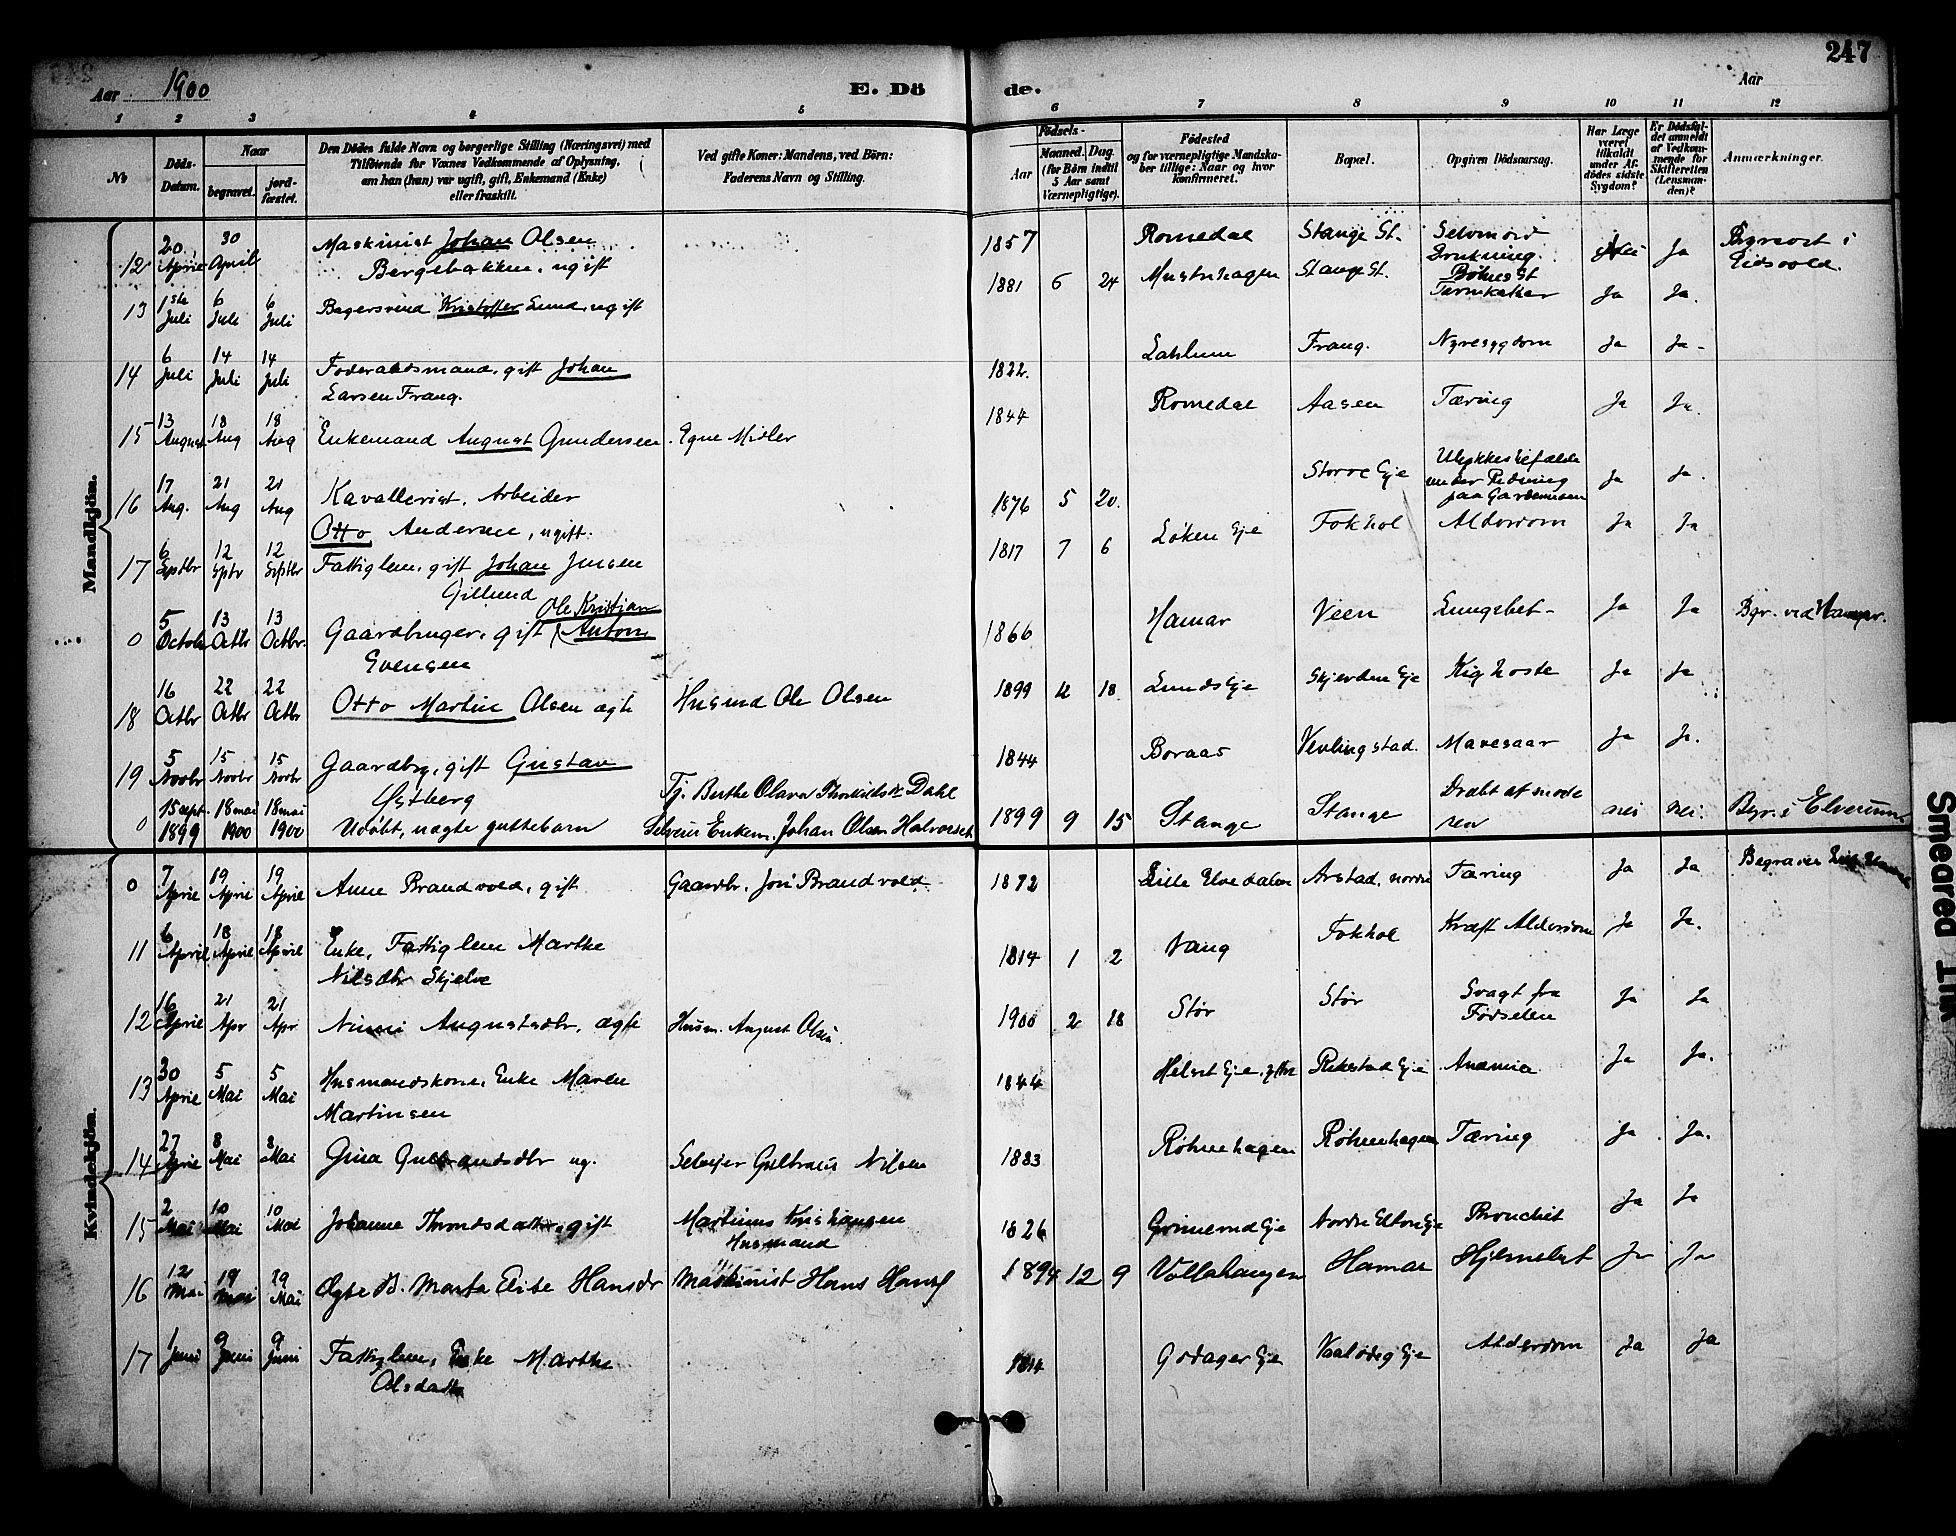 247
Aar 1900 E. Dö de. Aar
1 2 3 4 5 6 7 8 9 10 11 12
№ Döds-Datum. Naar begravet. jordfæstet. Den Dödes fulde Navn og borgerlige Stilling (Næringsvei) med Tilföiende for Voxnes Vedkommende af Oplysning, om han (hun) var ugift, gift, Enkemand (Enke) eller fraskilt. Ved gifte Koner: Mandens, ved Börn: Faderens Navn og Stilling. Födsels- Aar Maaned. Dag. (for Börn indtil 5 Aar samt Værnepligtige). Födested og for værnepligtige Mandskaber tillige: Naar og hvor konfirmeret. Bopæl. Opgiven Dödsaarsag. Har Læge været tilkaldt under Afdödes sidste Sygdom? Er Dödsfaldet anmeldt af Vedkommende for Skifteretten (Lensmanden)? Anmærkninger.
Mandkjön.
12 20 April 30 April Maskinist Johan Olsen Bergebakken, ugift 1857 Romedal Stange St. Selvmord Drukning. Nei Ja Begravet i Eidsvold.
13 1ste Juli 6 Juli 6 Juli Bagersvend Kristoffer Lund, ugift 1881 6 24 Stange St. Ja Ja.
14 6 Juli 14 Juli 14 Juli Föderaadsmand, gift Johan Larsen Frang. 1822. Frang. Nyresygdom Ja Ja
15 13 August 18 Aug 18 Aug Enkemand August Gundersen Egne Midler 1844 Romedal Aasen Tæring Ja Ja.
16 17 Aug. 21 Aug 21 Aug Kavallerist, Arbeider Otto Andersen, ugift. 1876 5 20. Eje Ulykkestilfælde under Ridning paa Gardermoen Ja Ja.
17 6 Septbr 12 Septbr 12 Septbr Fattiglem, gift Johan Jensen Gillund 1817 7 6 Løken Eje Fokhol Alderdom Ja Ja
0 5 Octob 13 Octbr 13 Octbr. Gaardbruger, gift Ole Kristian Anton Evensen 1866 Hamar Veen Lungebet- Ja Ja Bgr. ved Hamar.
18 16 Octbr 22 Octbr 22 Octbr Otto Martin Olsen ægte Husmd Ole Olsen 1899 18. Lunds Eje Skjerden Eje Kighoste Ja Ja
19 5 Novbr 15 Novbr 15 Novbr Gaardbrg, gift Gustav 1844 Boraas Vevlingstad. Mavesaar Ja Ja.
0 15 sept. 1899 18 mai 1900 18 mai 1900 Udöbt, uægte guttebarn Tj. Berthe Olava Dahl Selveier Enkem. Johan Olsen 1899 9 15 Stange Stange Dræbt af moderen nei nei. Bgr. i Elverum
Kvindekjön.
0 7 April 19 April 19 April Anne Brandvold, gift Gaardbr. Jon Brandvold 1872 Lille Elvedalen Arstad, nordre Tæring Ja Ja Begraven
11 6 April 18 April 18 April Enke, Fattiglem Marthe Nilsdtr Skjelve 1814 1 2 Vang Fokhol Kræft Alderdom Ja Ja.
12 16 April 21 Apr 21 Apr Augustsdtr, ægte Husm. August Olsen. 1900 2 18 Stør Stør Svagt fra Fødselen Ja Ja
13 30 April 5 Mai 5 Mai Husmandskone, Enke Maren Martinsen 1844 Eje Eje Anæmia Ja Ja.
14 27 April 8 Mai 8 Mai Gina Gulbrandsdtr ug. Selvejer Nilsen 1883 Röhnehagen Röhnehagen Tæring Ja Ja.
15 2 Mai 10 Mai 10 Mai Johanne gift Martinus Kristiansen Husmand 1826 Grimerud Eje Nordre Elton Eje Bronchit Ja Ja
16 12 Mai 19 Mai 19 Mai Ægte B. Marta Elise Hansdr Maskinist Hans 1894 12 9 Vollahaugen Hamar Hjernebet Ja Ja
17 1 Juni 9 Juni 9 Juni Fattiglem, Enke Marthe Olsdatter 1814 Godager Eje Eje Alderdom Ja Ja
Smeared Ink